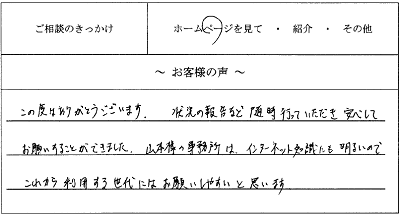 ご相談のきっかけ
ホームページを見て ・ 紹介 ・ その他
～ お客様の声 ～
この度はありがとうございます。 状況の報告など随時行っていただき安心して
お願いすることができました。山本様の事務所は、インターネット知識にも明るいので
これから利用する世代にはお願いしやすいと思います